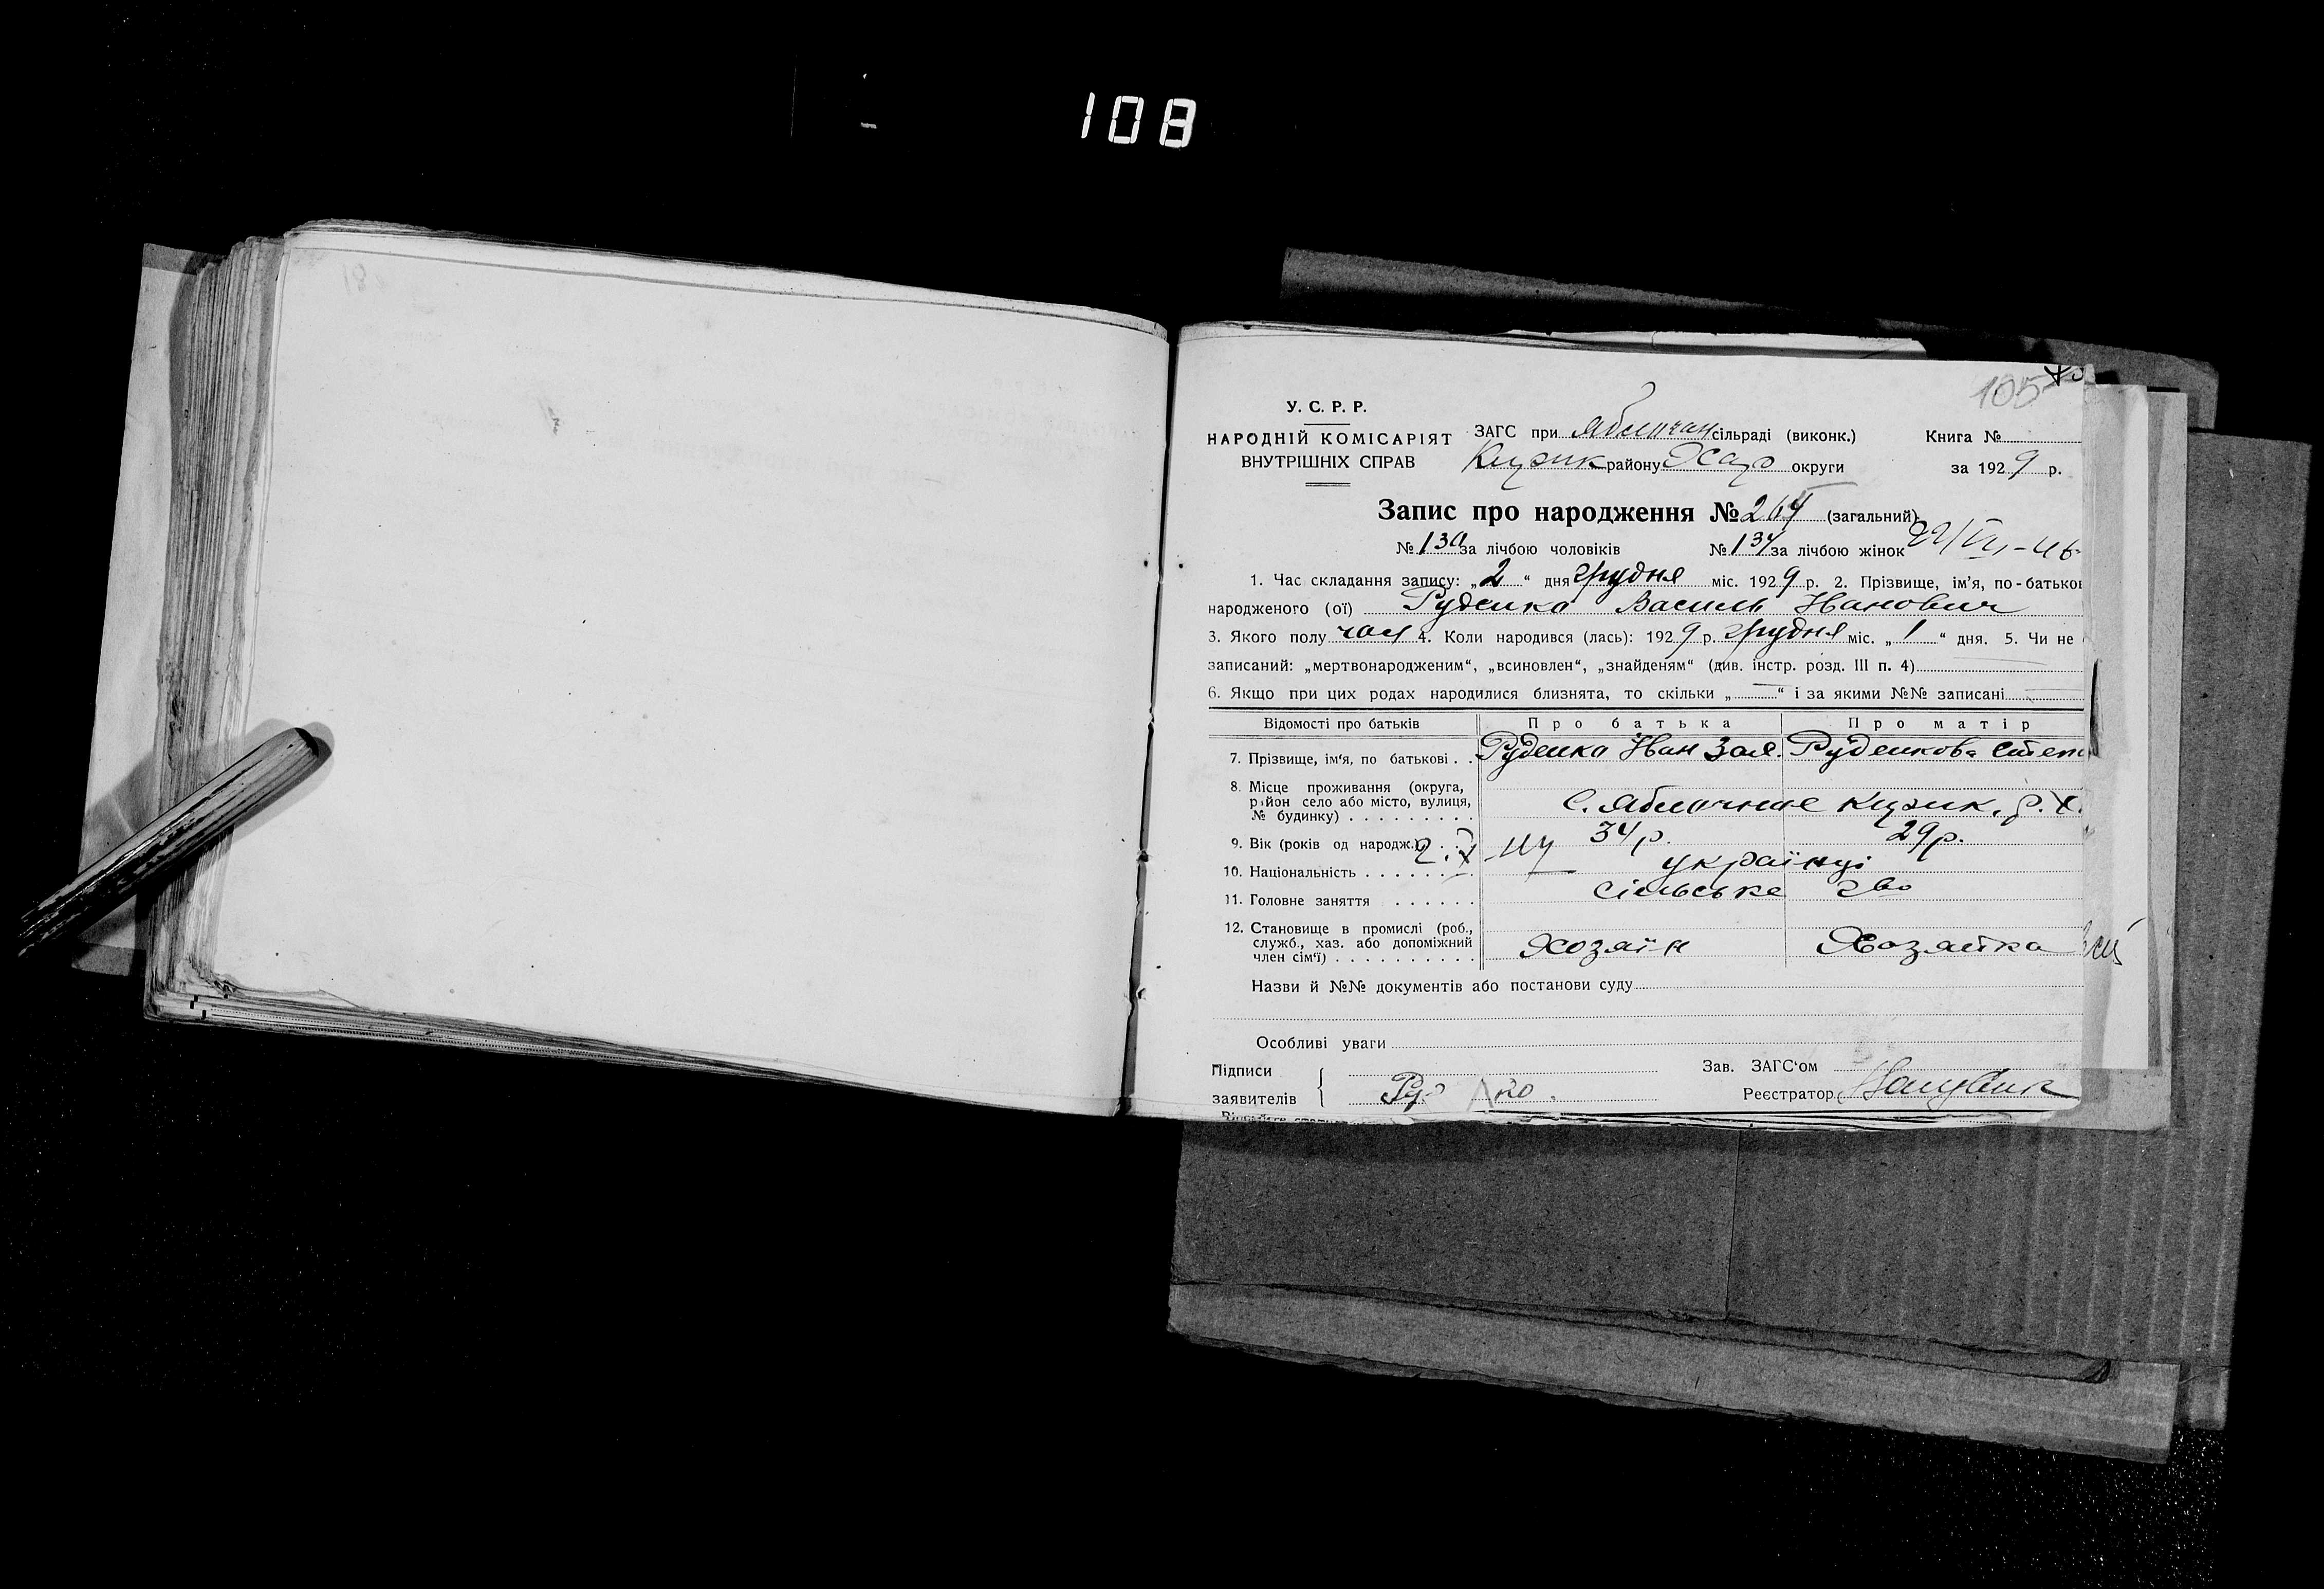 108
105
У. С. Р. Р.
НАРОДНІЙ КОМІСАРІЯТ
ВНУТРІШНІХ СПРАВ
ЗАГС при Яблочан сільраді (виконк.) Книга №
району округи за 1929 р.
Запис про народження № 264 (загальний)
№ 130 за лічбою чоловіків № 134 за лічбою жінок
1. Час складання запису: „2“ дня грудня міс. 1929 р. 2. Прізвище, ім'я, по-батькові
народженого (ої) Руденко Василь Иванович
3. Якого полу чол 4. Коли народився (лась): 1929 р. грудня міс. „1“ дня. 5. Чи не
записаний: „мертвонародженим“, „всиновлен“, „знайденям“ (див. інстр. розд. III п. 4)
6. Якщо при цих родах народилися близнята, то скільки „—“ і за якими №№ записані
Відомості про батьків Про батька Про матір
7. Прізвище, ім'я, по батькові . . Руденко Иван Руденкова
8. Місце проживання (округа,
район село або місто, вулиця,
№ будинку) . . . . . . . . . с. Яблочное
9. Вік (років од народж.) 34 р. 29 р.
10. Національність . . . . . . . українці
11. Головне заняття . . . . . . сільське г-во
12. Становище в промислі (роб.,
служб., хаз. або допоміжний
член сім'ї) . . . . . . . . . . Хозяїн Хозяйка
Назви й №№ документів або постанови суду
Особливі уваги
Підписи
заявителів
Зав. ЗАГС'ом
Реєстратор